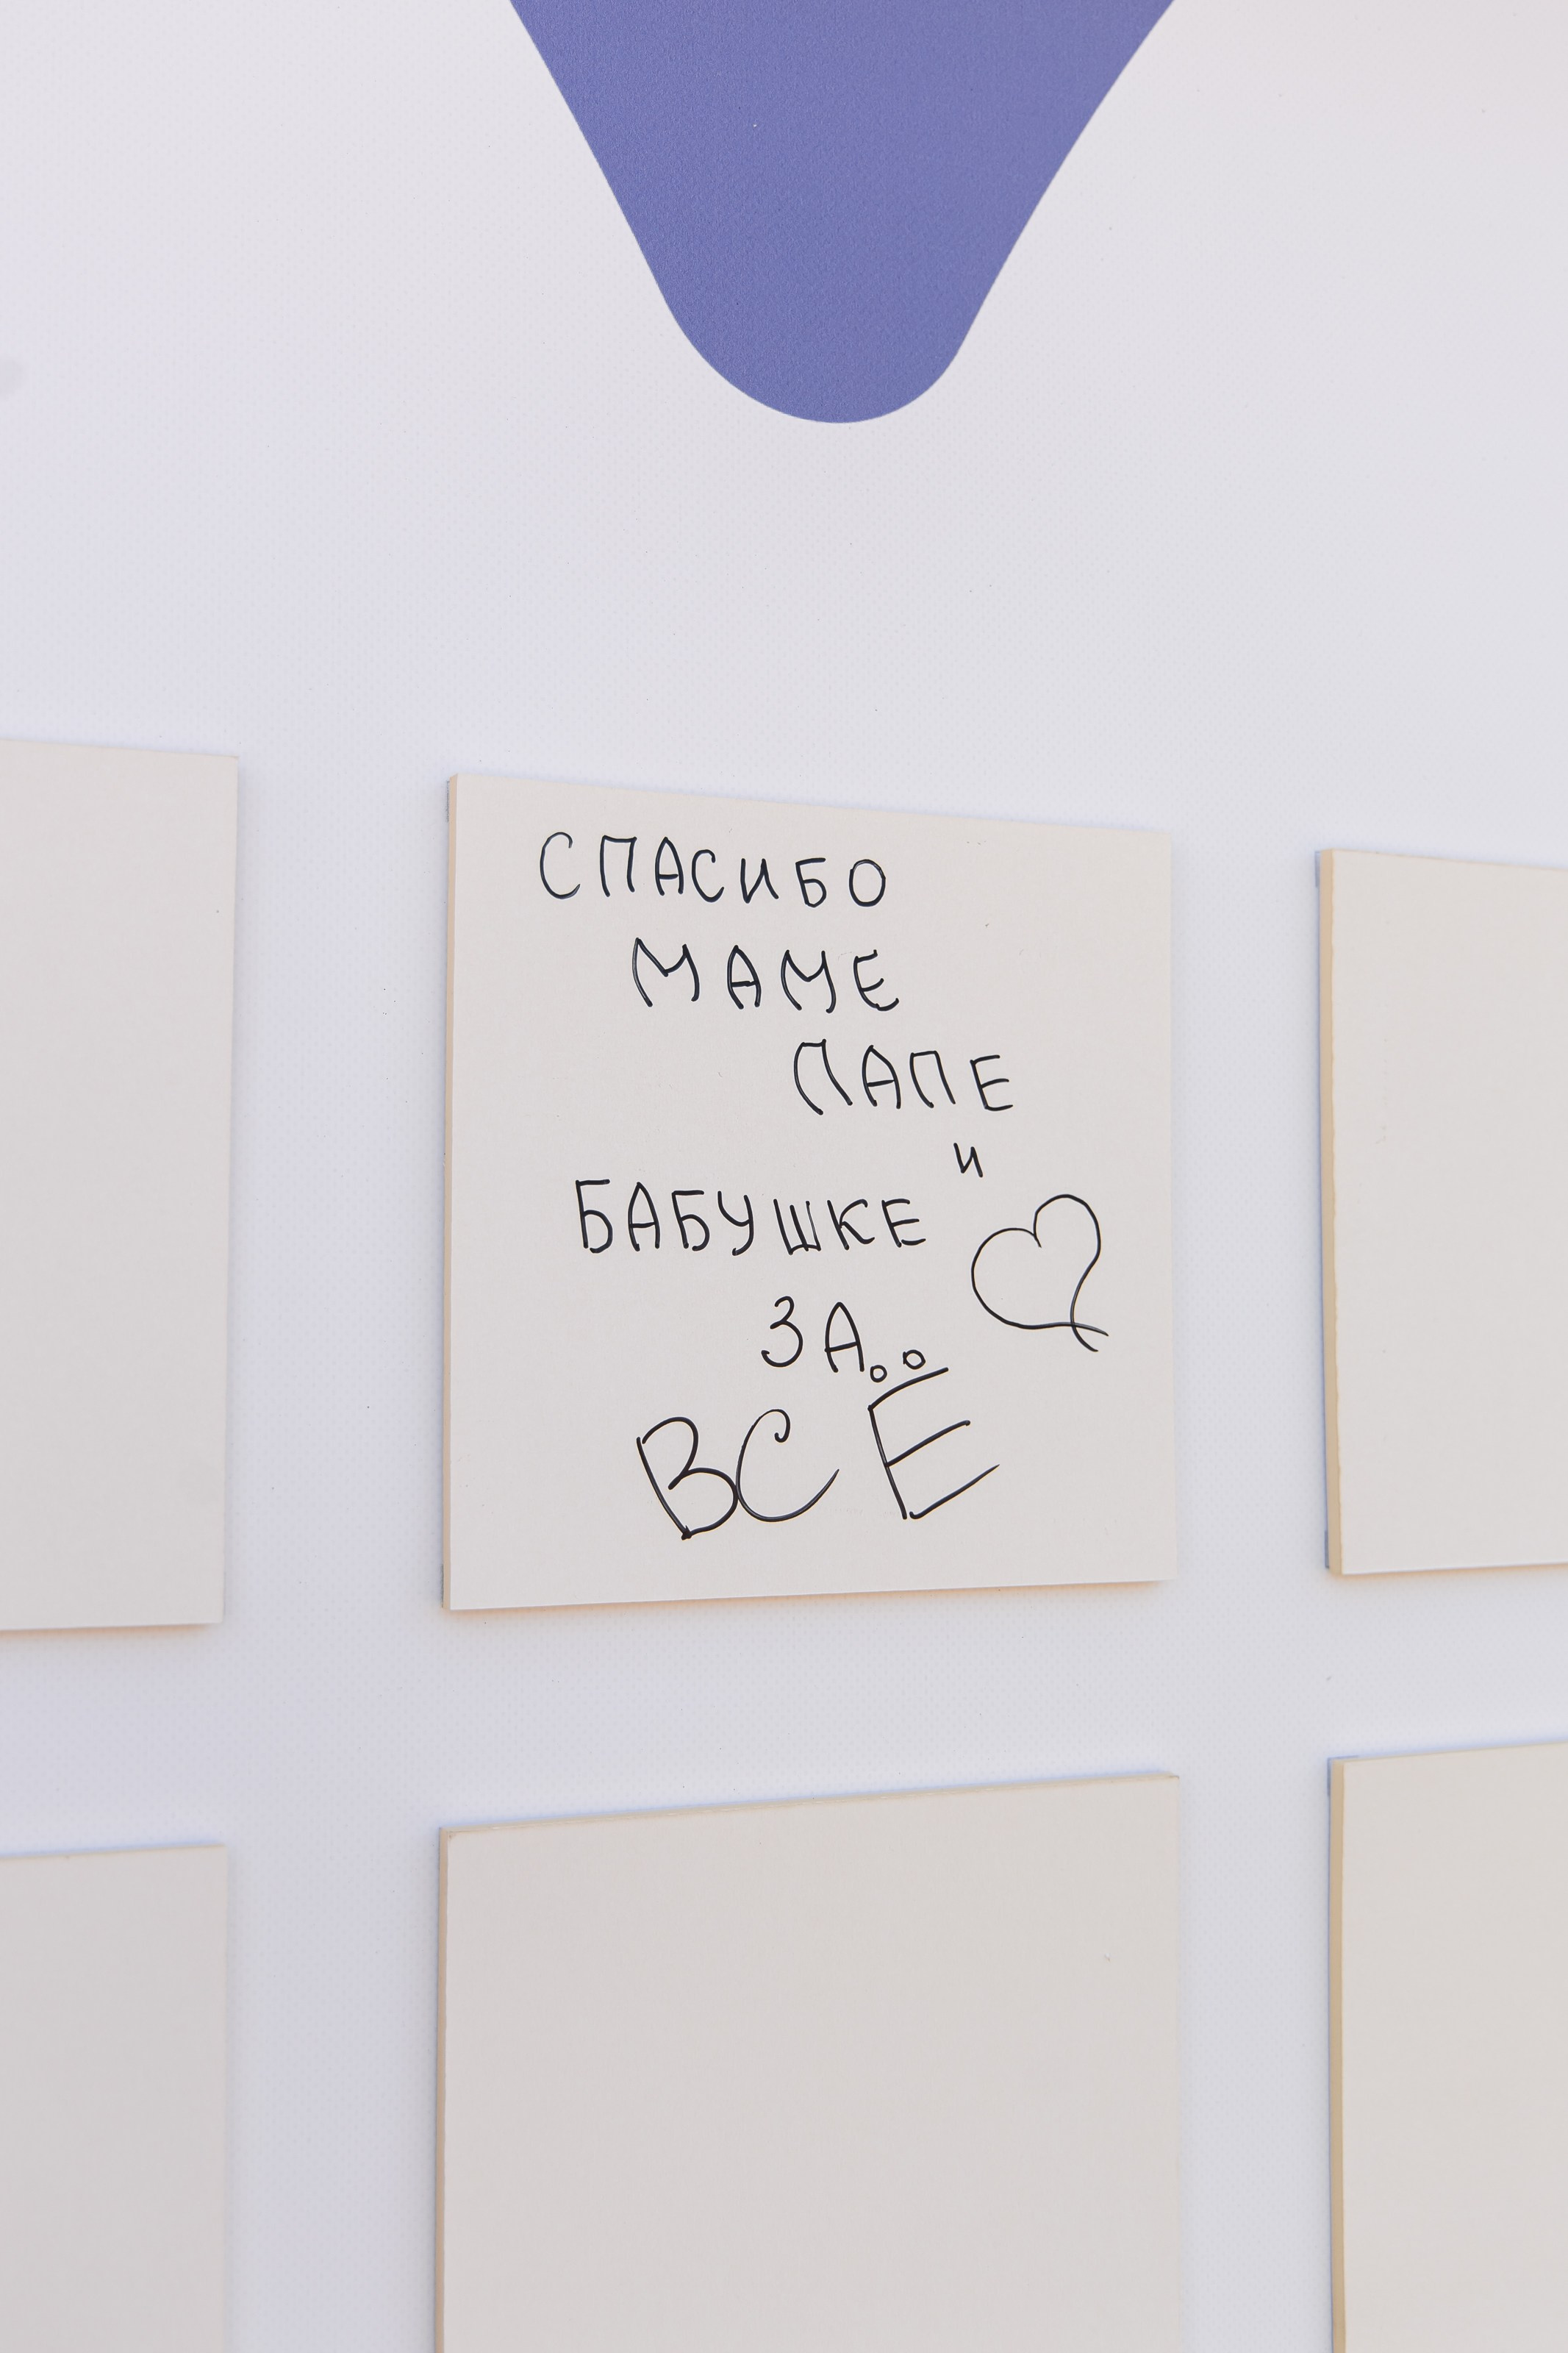 СПАСИБО
МАМЕ
ПАПЕ
и
БАБУШКЕ
ЗА
ВСЁ